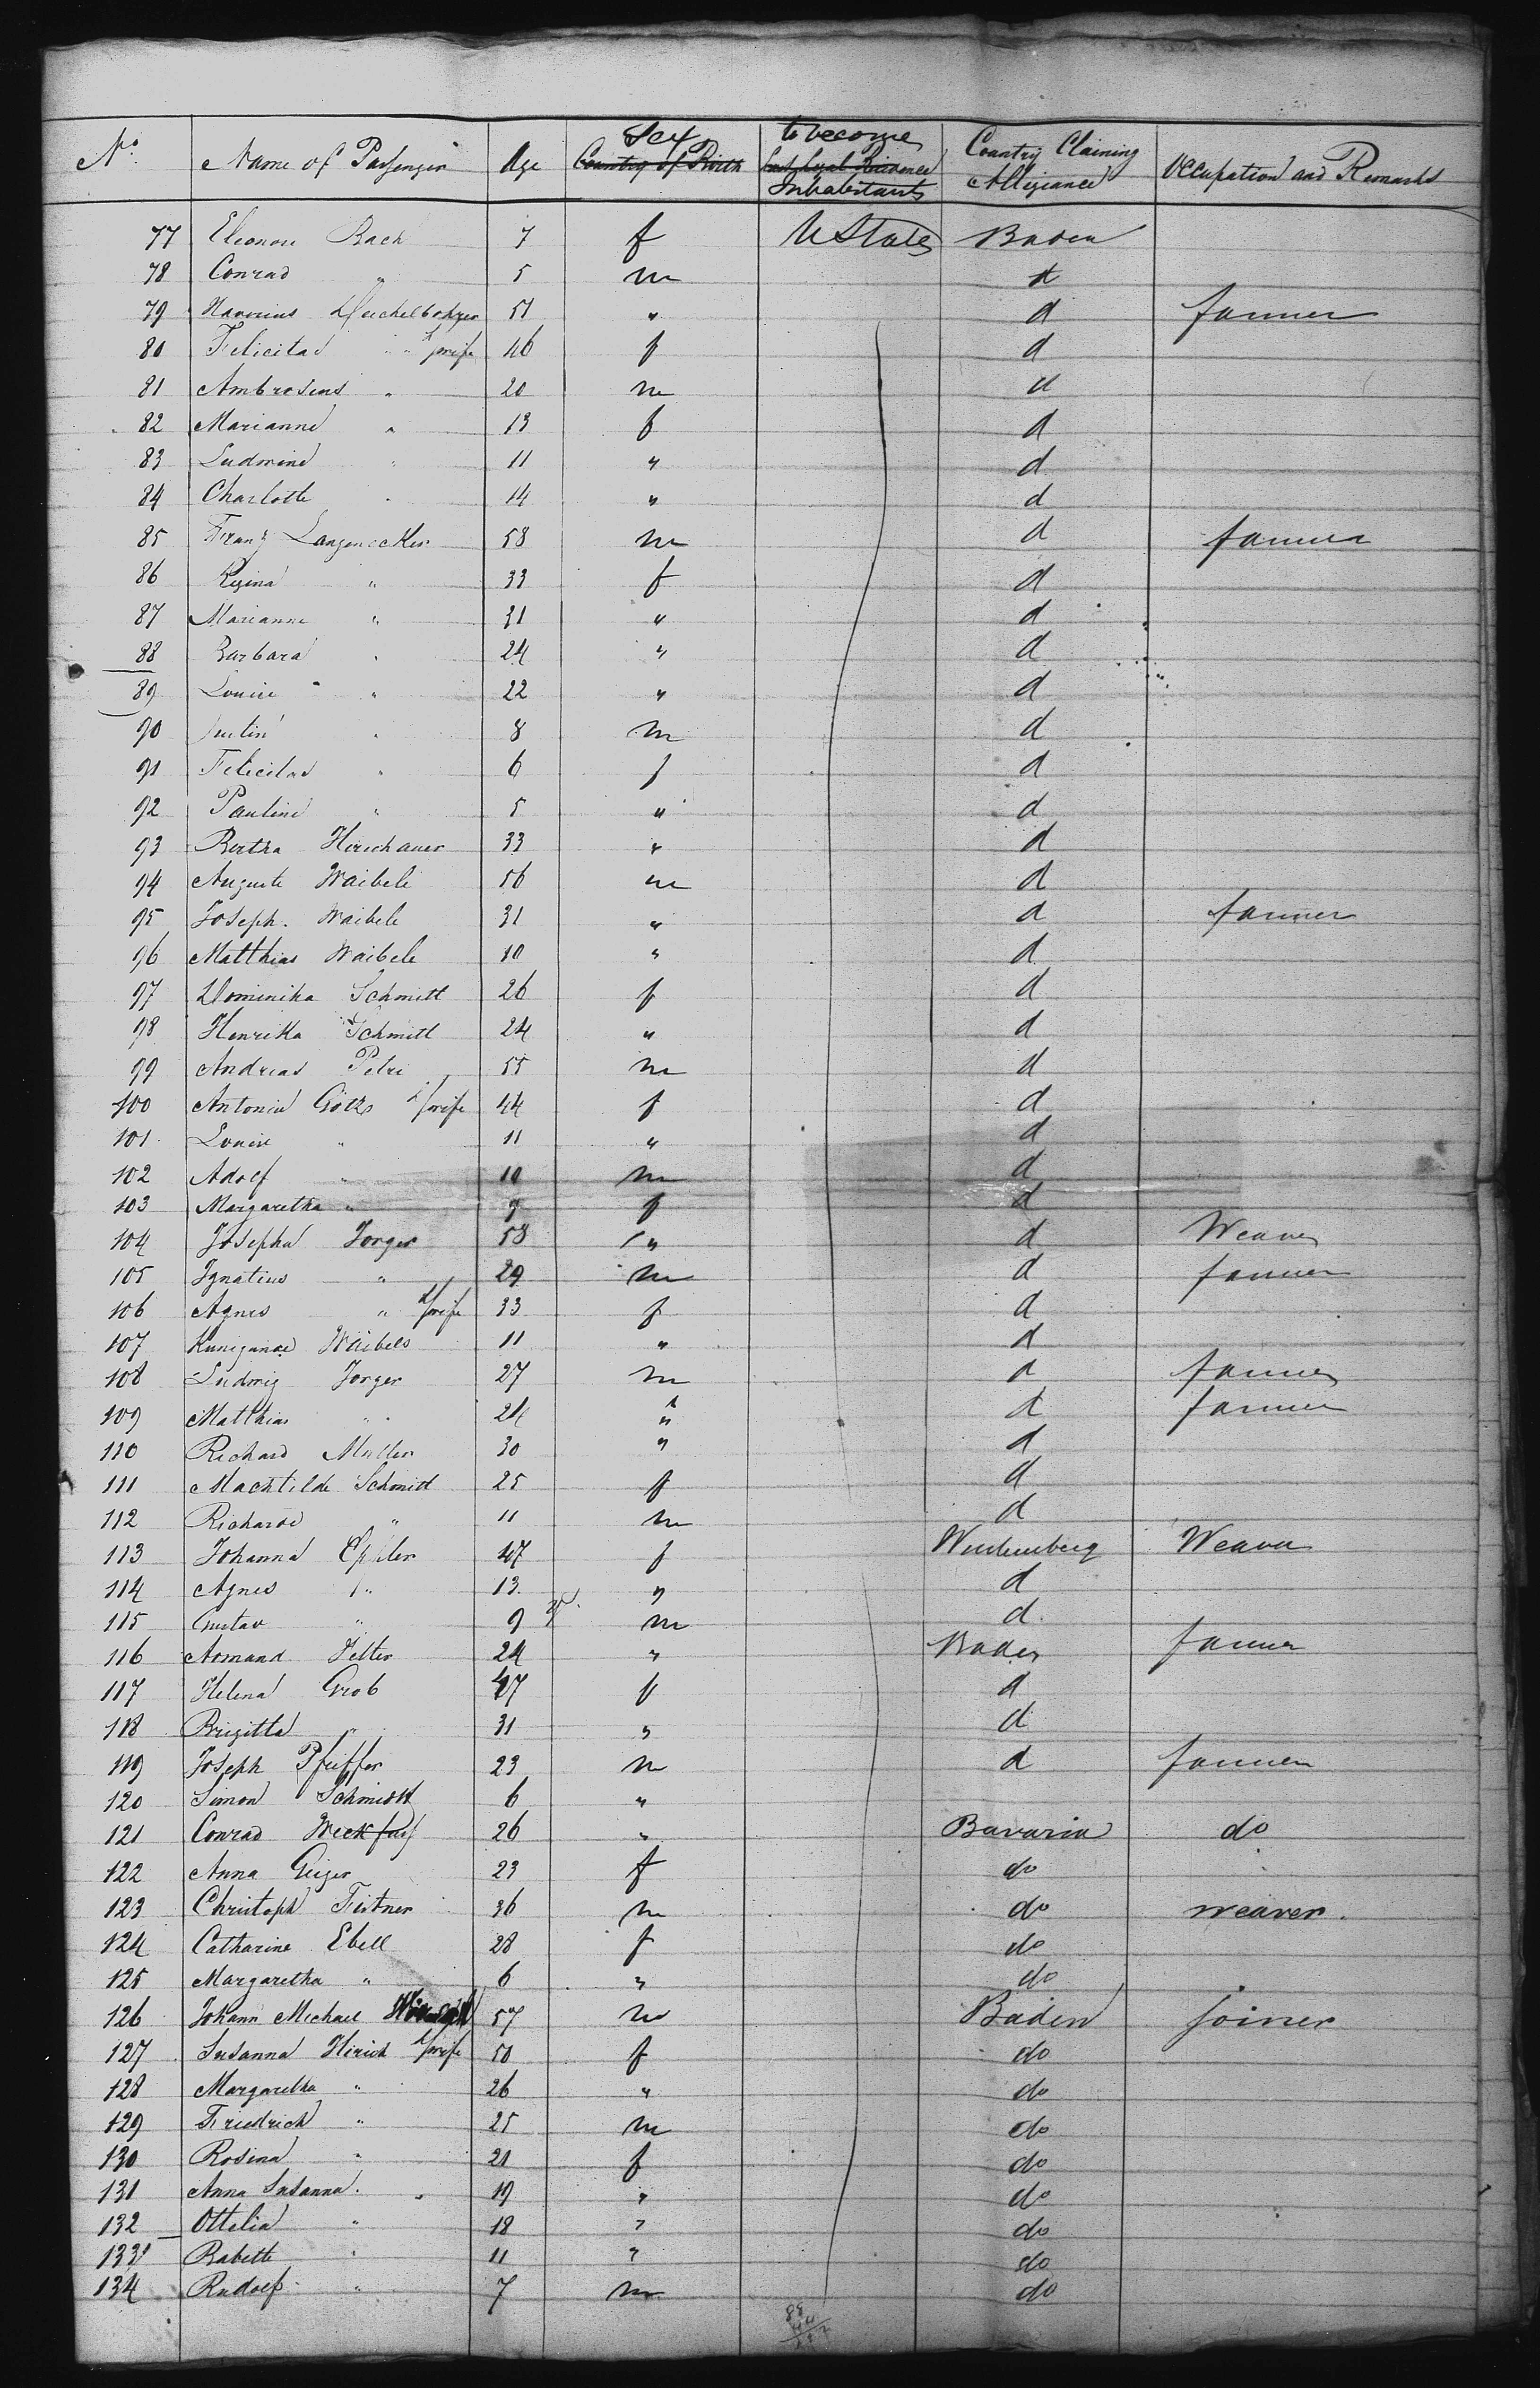 No. Name of Passenger Age Sex Country of Birth to become Last Legal Residence Inhabitants Country Claiming Allegiance Occupation and Remarks
77 Eleonore Bach 7 f U States Baden
78 Conrad " 5 m d
79 51 " d farmer
80 Felicitas " wife 46 f d
81 Ambrosius " 20 m d
82 Marianne " 13 f d
83 11 " d
84 Charlotte " 14 " d
85 Franz Langenecker 58 m d farmer
86 Regina " 33 f d
87 Marianne " 31 " d
88 Barbara " 24 " d
89 Louise " 22 " d
90 8 m d
91 Felicitas " 6 f d
92 Pauline " 5 " d
93 Bertha Hirschauer 33 " d
94 Auguste Waibele 56 m d
95 Joseph. Waibele 31 " d farmer
96 Matthias Waibele 10 " d
97 Dominika Schmitt 26 f d
98 Henrikka Schmitt 24 " d
99 Andreas Petri 55 m d
100 Antonia Götz wife 44 f d
101 Louise " 11 " d
102 Adolf " 10 m d
103 Margaretha " 9 f d
104 Josepha Jorger 58 " d Weaver
105 Ignatius " 29 m d farmer
106 Agnes " wife 33 f d
107 11 " d
108 Ludwig Jorger 27 m d farmer
109 Matthias " 24 " d farmer
110 Richard Muller 30 " d
111 Machtilde Schmitt 25 f d
112 " 11 m d
113 Johanna 47 f Wurtemberg Weaver
114 Agnes " 13 " d
115 Gustav " 9 m d
116 24 " Baden farmer
117 Helena Grob 47 f d
118 Brigitta " 31 " d
119 Joseph Pfeiffer 23 m d farmer
120 Simon Schmidt 6 "
121 Conrad 26 " Bavaria do
122 Anna Geiger 23 f do
123 Christoph 36 m do weaver.
124 Catharine Ebell 28 f do
125 Margaretha " 6 " do
126 Johann Michael 57 m Baden joiner
127 Susanna Hirsch wife 50 f do
128 Margaretha " 26 " do
129 Friedrich " 25 m do
130 Rosina " 21 f do
131 Anna Susanna. " 19 " do
132 Ottelia " 18 " do
133 Babette " 11 " do
134 Rudolf " 7 m do
88